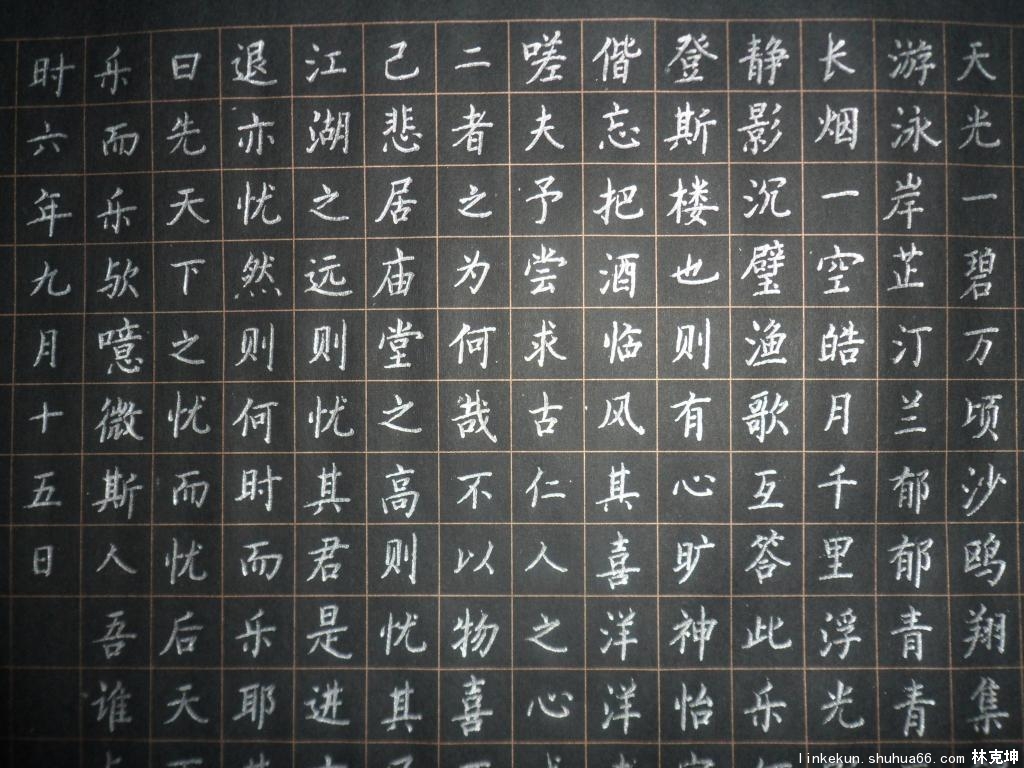 天光一碧万顷沙鸥翔集
游泳岸芷汀兰郁郁青青
长烟一空皓月千里浮光
静影沉璧渔歌互答此乐
登斯楼也则有心旷神怡
偕忘把酒临风其喜洋洋
嗟夫予尝求古仁人之心
二者之为何哉不以物喜
己悲居庙堂之高则忧其
江湖之远则忧其君是进
退亦忧然则何时而乐耶
曰先天下之忧而忧后天
乐而乐欤噫微斯人吾谁
时六年九月十五日
linkekun.shuhua66.com 林克坤